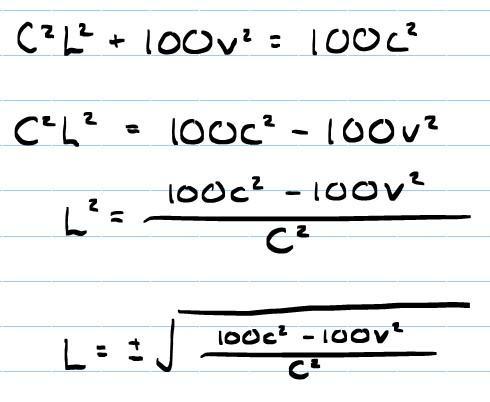 C²L² + 100v² = 100c²
C²L² = 100c² - 100v²
L² = (100c² - 100v²) / C²
L = ±√((100c² - 100v²) / C²)